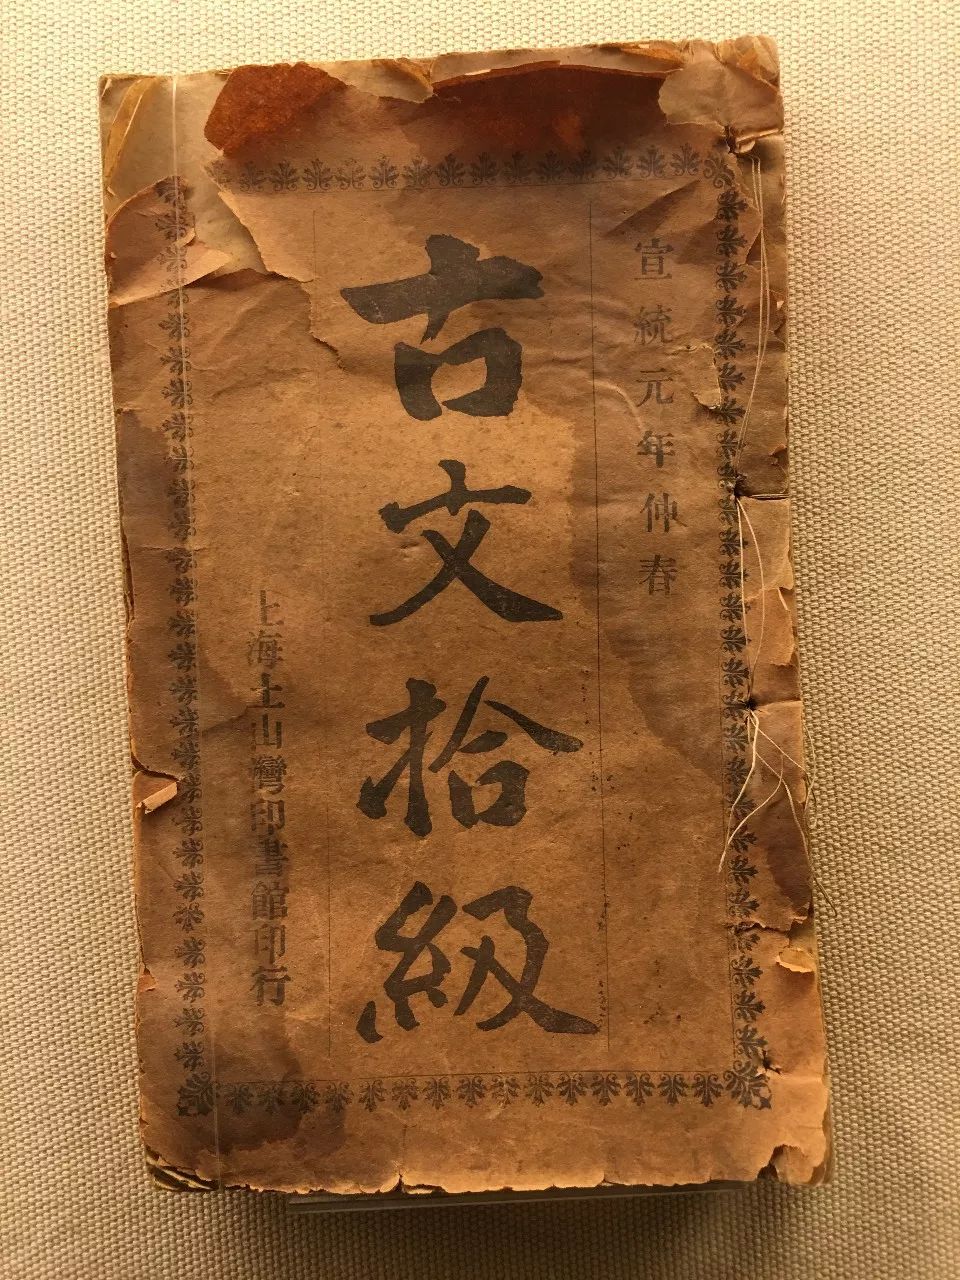 宣統元年仲春
古文拾級
上海土山灣印書館印行